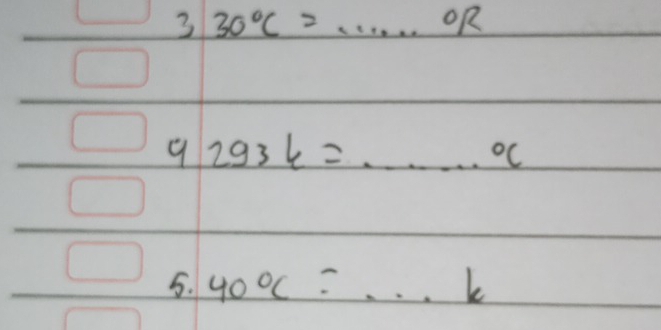 3 30°C = ...... °R
4 293 k = ........ °C
5. 40°C = .... k